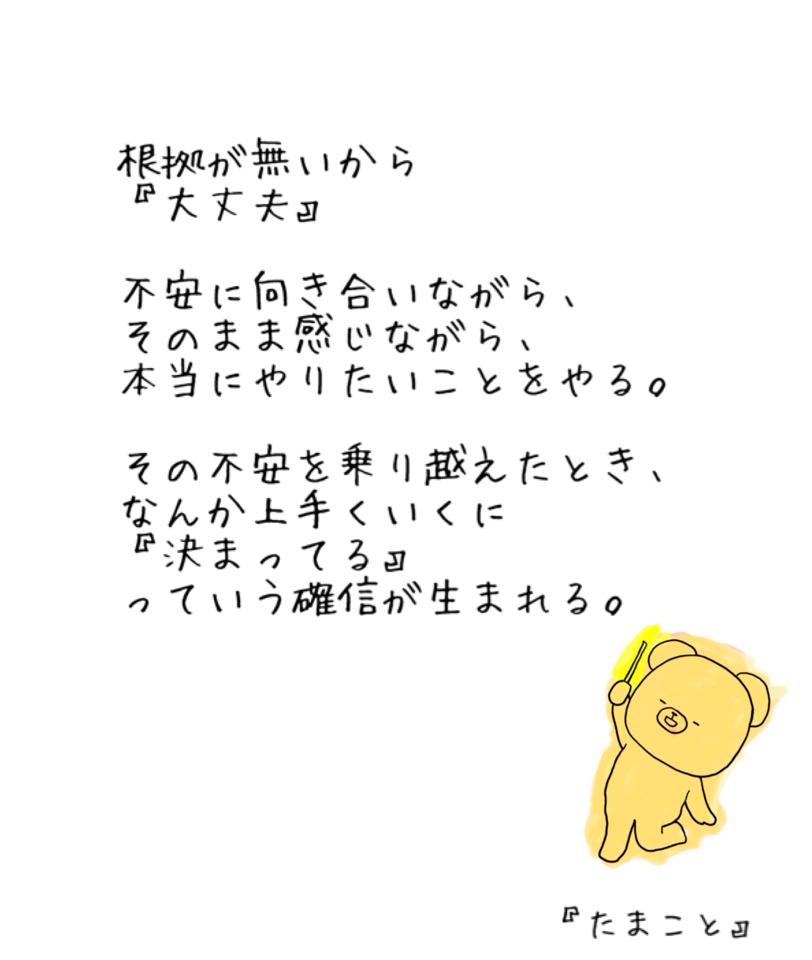 根拠が無いから
『大丈夫』
不安に向き合いながら、
そのまま感じながら、
本当にやりたいことをやる。
その不安を乗り越えたとき、
なんか上手くいくに
『決まってる』
っていう確信が生まれる。
『たまこと』